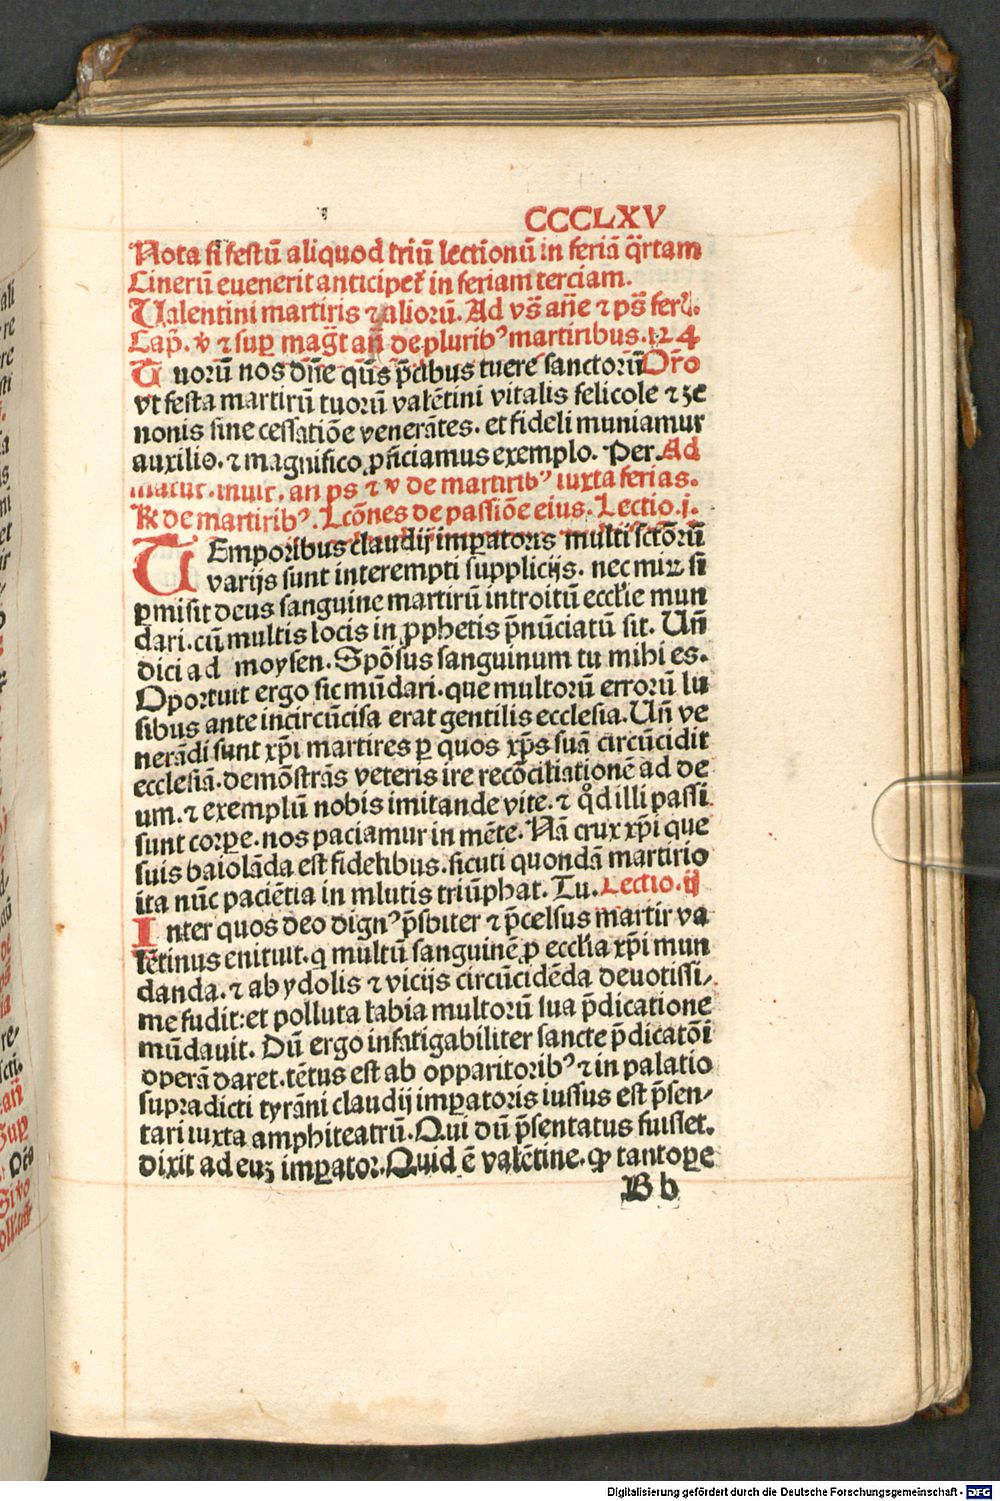 CCCLXV
Nota si festū aliquod triū lectionū in feriā q̈rtam
Cinerū evenerit anticipet᷑ in feriam terciam.
Valentini martiris ⁊ aliorū. Ad vs̄ añe ⁊ ps̄
Cap̄. ꝟ ⁊ suꝑ mag̅t añ de pluribꝰ martiribus. 124
Tuorū nos dñe qs̄ p̄cibus tuere sanctorū Oro
vt festa martirū tuorū valētini vitalis felicole ⁊ ze
nonis sine cessatiōe venerātes. et fideli muniamur
auxilio. ⁊ magnifico ꝓficiamus exemplo. Per. Ad
matut. inuit. an ps ⁊ ꝟ de martiribꝰ iuxta ferias.
R̄ de martiribꝰ. Lcōnes de passiōe eius. Lectio. j.
TEmporibus claudij imꝑatoris multi sctōrū
varijs sunt interempti supplicijs. nec miꝝ si
ꝑmisit deus sanguine martirū introitū ecclie mun
dari. cū multis locis in ꝓphetis p̄nūciatū sit. Uñ
dici ad moysen. Spōsus sanguinum tu mihi es.
Oportuit ergo sic mūdari. que multorū errorū lu
sibus ante incircūcisa erat gentilis ecclesia. Uñ ve
nerādi sunt xp̄i martires ꝑ quos xp̄s suā circūcidit
ecclesiā. demōstrās veteris ire recōciliationē ad de
um. ⁊ exemplū nobis imitande vite. ⁊ qd̊ illi passi
sunt corꝑe. nos paciamur in mēte. Nā crux xp̄i que
suis baiolāda est fidelibus. sicuti quondā martirio
ita nūc paciētia in mlutis triūphat. Tu. Lectio. ij
Inter quos deo dignꝰ p̄sbiter ⁊ p̄celsus martir va
lētinus enituit. q multū sanguinē ꝓ ecclia xp̄i mun
danda. ⁊ ab ydolis ⁊ vicijs circūcidēda deuotissi,
me fudit: et polluta labia multorū sua p̄dicatione
mūdauit. Dū ergo infatigabiliter sancte p̄dicatōi
operā daret. tētus est ab opparitoribꝰ ⁊ in palatio
supradicti tyrāni claudij imꝑatoris iussus est p̄sen,
tari iuxta amphiteatrū. Qui dū p̄sentatus fuisset.
dixit ad euꝫ imꝑator. Quid ē valētine. ꝙ tantoꝑe
B b
Digitalisierung gefördert durch die Deutsche Forschungsgemeinschaft - DFG